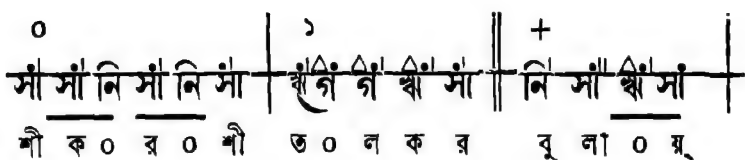 ০ ১ +
সা সা নি সা নি সা ঋা গ গ ঋা সা নি সা ঋা সা
শী ক ০ র ০ শী ত ০ ল ক র বু লা ০ য়্